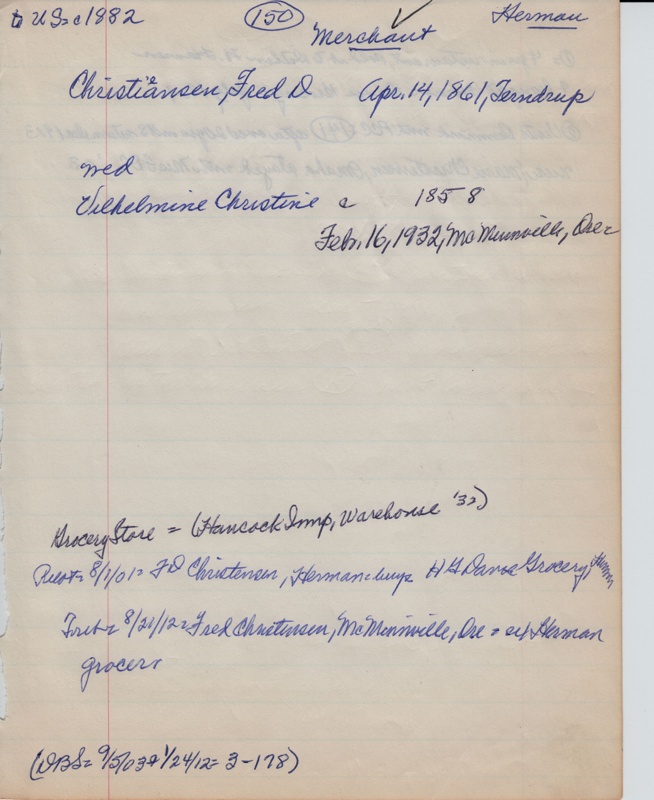 to US=c1882 150 Herman
Merchant
Christiansen, Fred D Apr. 14, 1861, Terndrup
e
wed
Vilhelmine Christine c 1858
Feb. 16, 1932, McMinnville, Ore
Grocery Store = (Hancock Imp, Warehouse '32)
Pilot= 8/1/01= FD Christensen, Herman=buys H G Grocery, Herman
Trib= 8/21/12= Fred Christensen, McMinnville, Ore = ex Herman
grocer
(DBS= 9/5/03 1/24/12= 3-178)